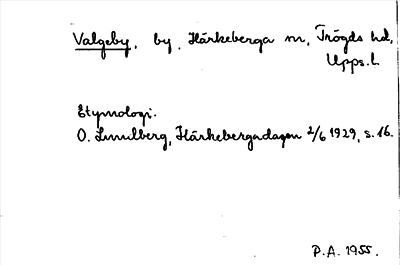 Valgeby, by, Härkeberga sn, Trögds hd,
Upps. l.
Etymologi.
O. Lundberg, Härkebergadagen 2/6 1929, s. 16.
P.A. 1955.